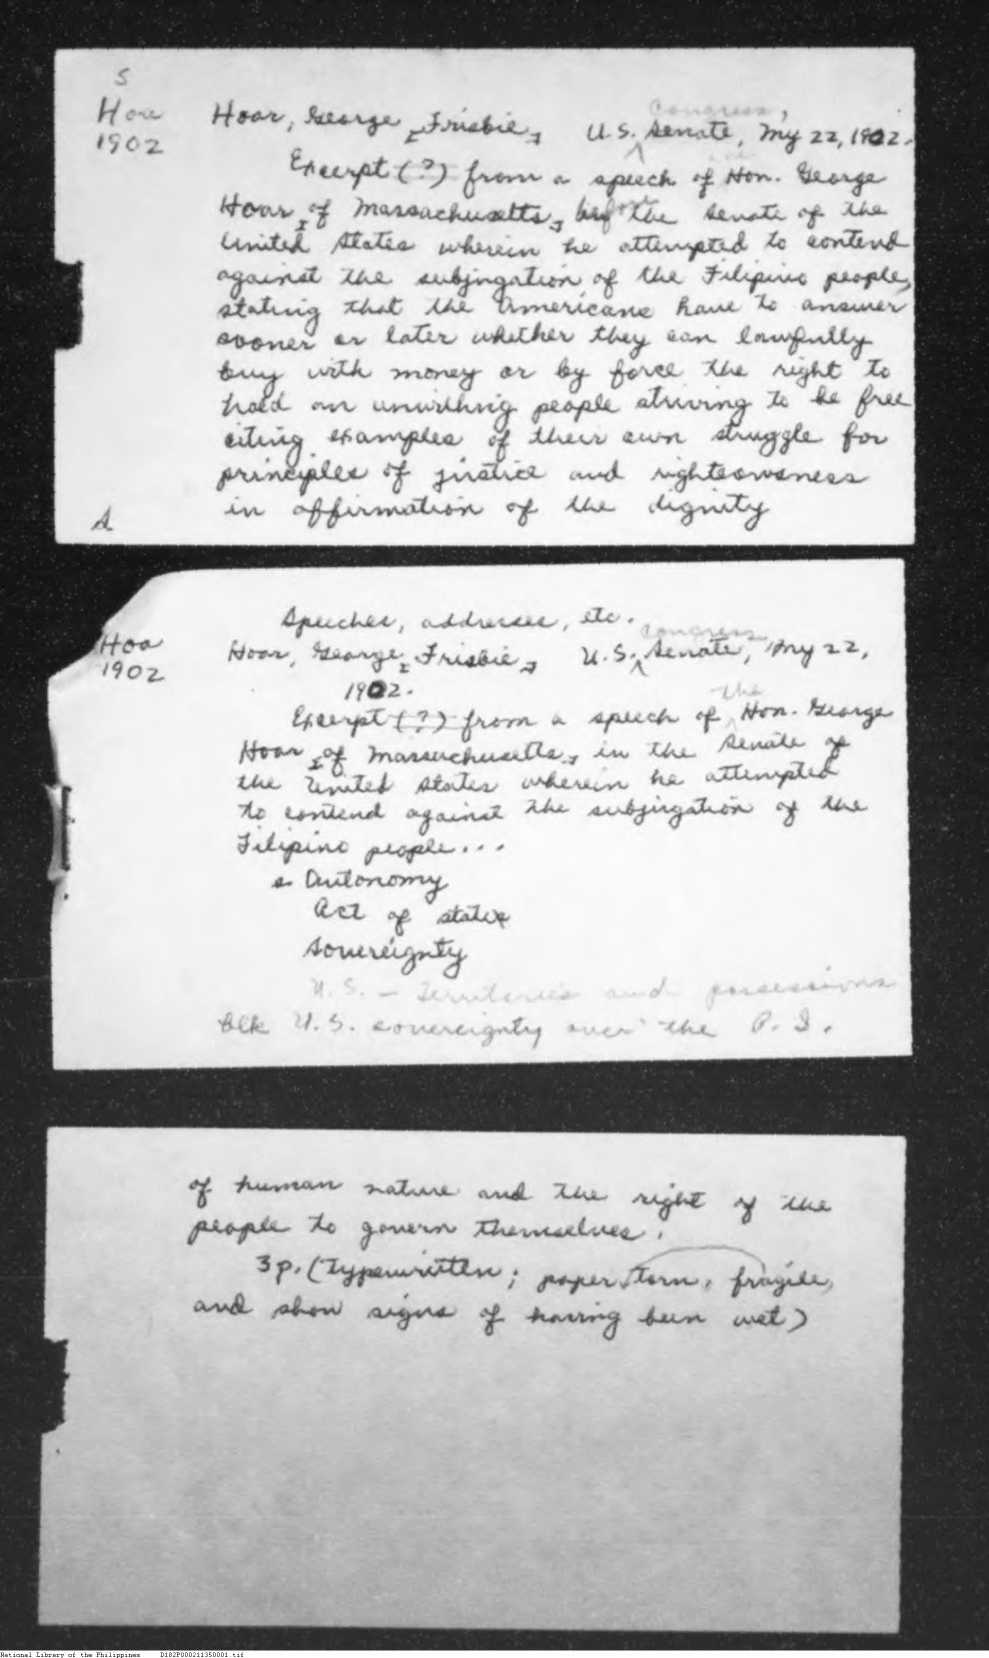 S
Hoa
1902
Congress,
Hoar, George [Frisbie] U.S. Senate, My 22, 1902.
Excerpt (?) from a speech of Hon. George
Hoar [of Massachusetts] before the Senate of the
United States wherein he attempted to contend
against the subjugation of the Filipino people,
stating that the Americans have to answer
sooner or later whether they can lawfully
buy with money or by force the right to
hold an unwilling people striving to be free
citing examples of their own struggle for
principles of justice and righteousness
in affirmation of the dignity
A
Speeches, addresses, etc.
Hoa
1902
Congress
Hoar, George [Frisbie] U.S. Senate, My 22,
1902.
Excerpt (?) from a speech of the Hon. George
Hoar [of Massachusetts] in the Senate of
the United States wherein he attempted
to contend against the subjugation of the
Filipino people...
s- Autonomy
Act of state
Sovereignty
U.S. - Territories and possessions
blk U.S. sovereignty over the P.I.
of human nature and the right of the
people to govern themselves.
3 p. (typewritten; paper torn, fragile,
and show signs of having been wet)
National Library of the Philippines D182P000211350001.tif